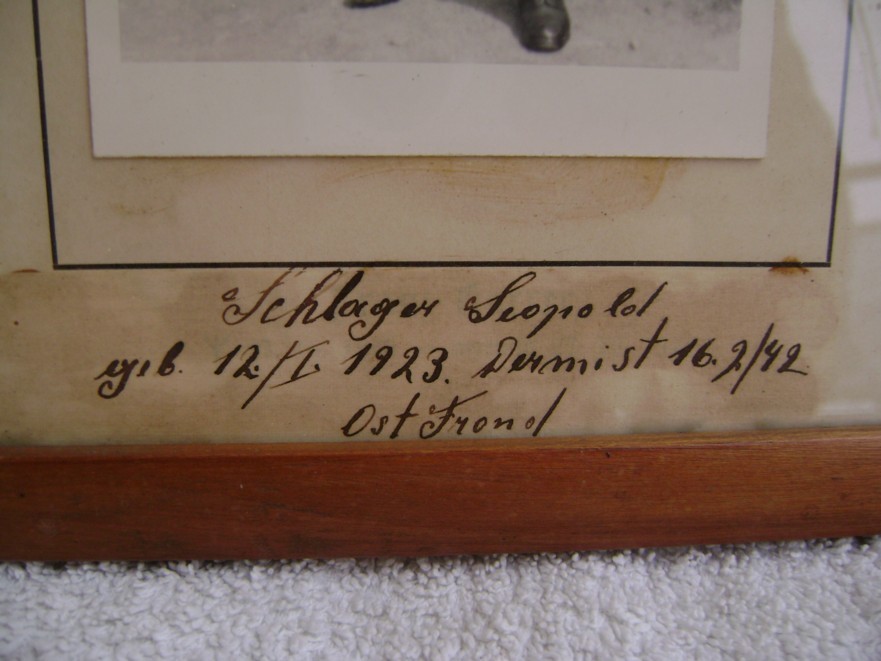 Schlager Leopold
geb. 12./I. 1923. Dermist 16.2/42
Ost Frond